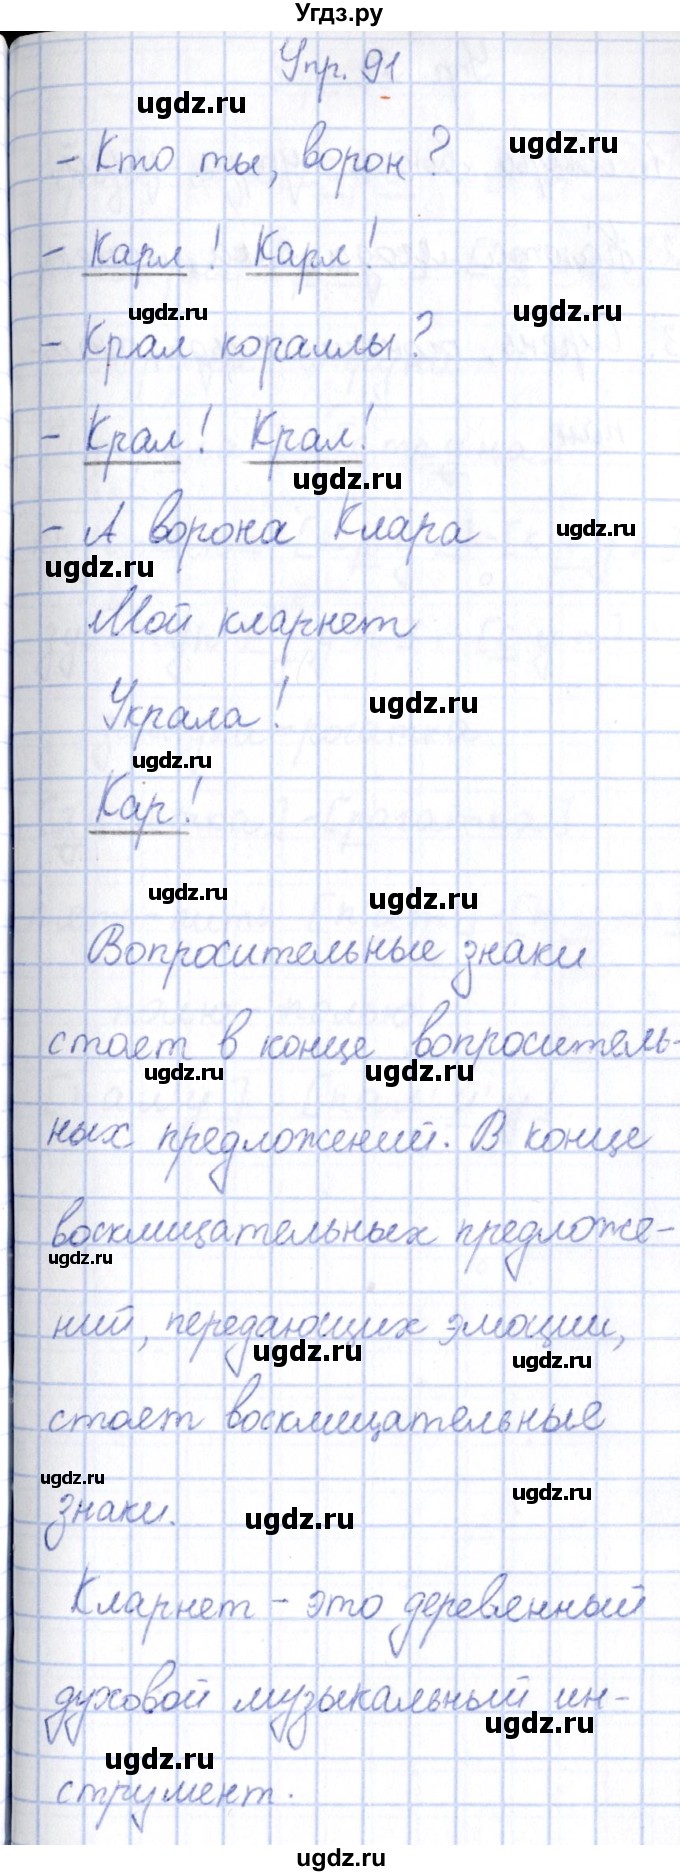 Угдз.ру
Упр. 91
ugdz.ru
ugdz.ru
- Кто ты, ворон?
- Карл! Карл!
ugdz.ru
ugdz.ru
- Крал кораллы?
- Крал! Крал!
ugdz.ru
- А ворона Клара
ugdz.ru
ugdz.ru
Мой кларнет
ugdz.ru
Украла!
ugdz.ru
Кар!
ugdz.ru
ugdz.ru
Вопросительные знаки
стоят в конце вопроситель-
ugdz.ru
ugdz.ru
ных предложений. В конце
восклицательных предложе-
ugdz.ru
ний, передающих эмоции,
ugdz.ru
ugdz.ru
стоят восклицательные
ugdz.ru
ugdz.ru
знаки.
ugdz.ru
Кларнет - это деревянный
духовой музыкальный ин-
ugdz.ru
ugdz.ru
струмент.
ugdz.ru